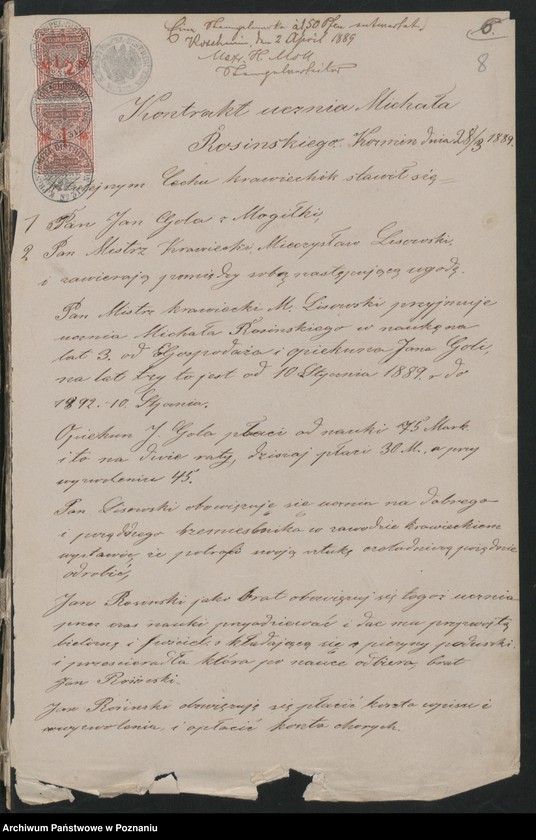 Eine Stempelmarke à 1,50 Pfen entwertet.
Koschmin, den 2 April 1889
H. Moll
6.
8
1 1/2
1
Kontrakt ucznia Michała
Rosinskiego. Kozmin dnia 28/3 1889.
Cechu krawieckim stawił się
1 Pan Jan Gola z Mogiłki,
2 Pan Mistrz Krawiecki, Mieczysław Lisowski,
i zawierają pomiędzy sobą następującą ugodę.
Pan Mistrz krawiecki M. Lisowski przyjmuje
ucznia Michała Rosinskiego w naukę na
lat 3. od Gospodarza i opiekuna Jana Goli,
na lat trzy to jest od 10 Stycznia 1889. r do
1892. 10. Stycznia.
Opiekun J. Gola płaci od nauki 75 Mark.
i to na dwie raty, dzisiaj płaci 30 M., a przy
wyzwoleniu 45.
Pan Lisowski obowięzuje się ucznia na dobrego
i porządnego rzemieslnika w zawodzie krawieckiem
wystawić, że potrafi swoją sztukę czeladniczą porządnie
odrobić,
Jan Rosinski jako brat obowięzuje się tegoż ucznia
przez czas nauki przyodziewać i dac mu przyzwoitą
bieliznę i pościel, składającą się z pierzyny poduszki
i prześcieradła która po nauce odbiera, brat
Jan Rosinski.
Jan Rosinski obowięzuje się płacić koszta wpisu i
wyzwolenia, i opłacić koszta chorych.
Archiwum Państwowe w Poznaniu